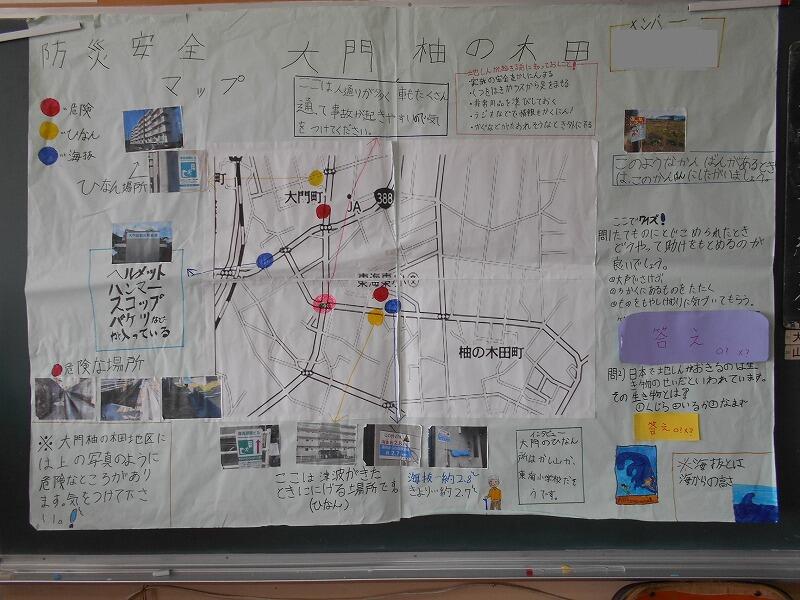 防災安全 大門 柚の木田
マップ
メンバー
ここは人通りが多く車もたくさん
通って事故が起きやすいので気
をつけてください。
・家族の安全をかくにんする
・くつをはきガラスから足をまもる
・ラジオなどで情報をかくにん!
・かぐなどがたおれそうなとき外にでる
・危険
・ひなん
・海抜
ひなん場所
ヘルメット
ハンマー
スコップ
バケツなど
が入っている
危険な場所
※大門柚の木田地区に
は上の写真のように
危険なところがあり
ます。気をつけて下さ
い。
大門町
JA
388
柚の木田町
ここは津波がきた
ときににげる場所です。
(ひなん)
海抜…約2.8m
きょり…約2.7m
インタビュー
大門のひなん
所はかい山か、
東海小学校だそ
うです。
このようなかんばんがあるとき
は、このかんばんにしたがいましょう。
ここでクイズ!
問1)たてものにとじこめられたとき
どうやって助けをもとめるのが
良いでしょう。
①大声でさけぶ
②ちかくにあるものをたたく
③ものをもやしけむりに気づいてもらう。
答え
○?×?
問2)日本で地しんがおきるのは生
き物のせいだといわれています。
その生き物とは?
①くじら②いるか③なまず
答え○?×?
※海抜とは
海からの高さ